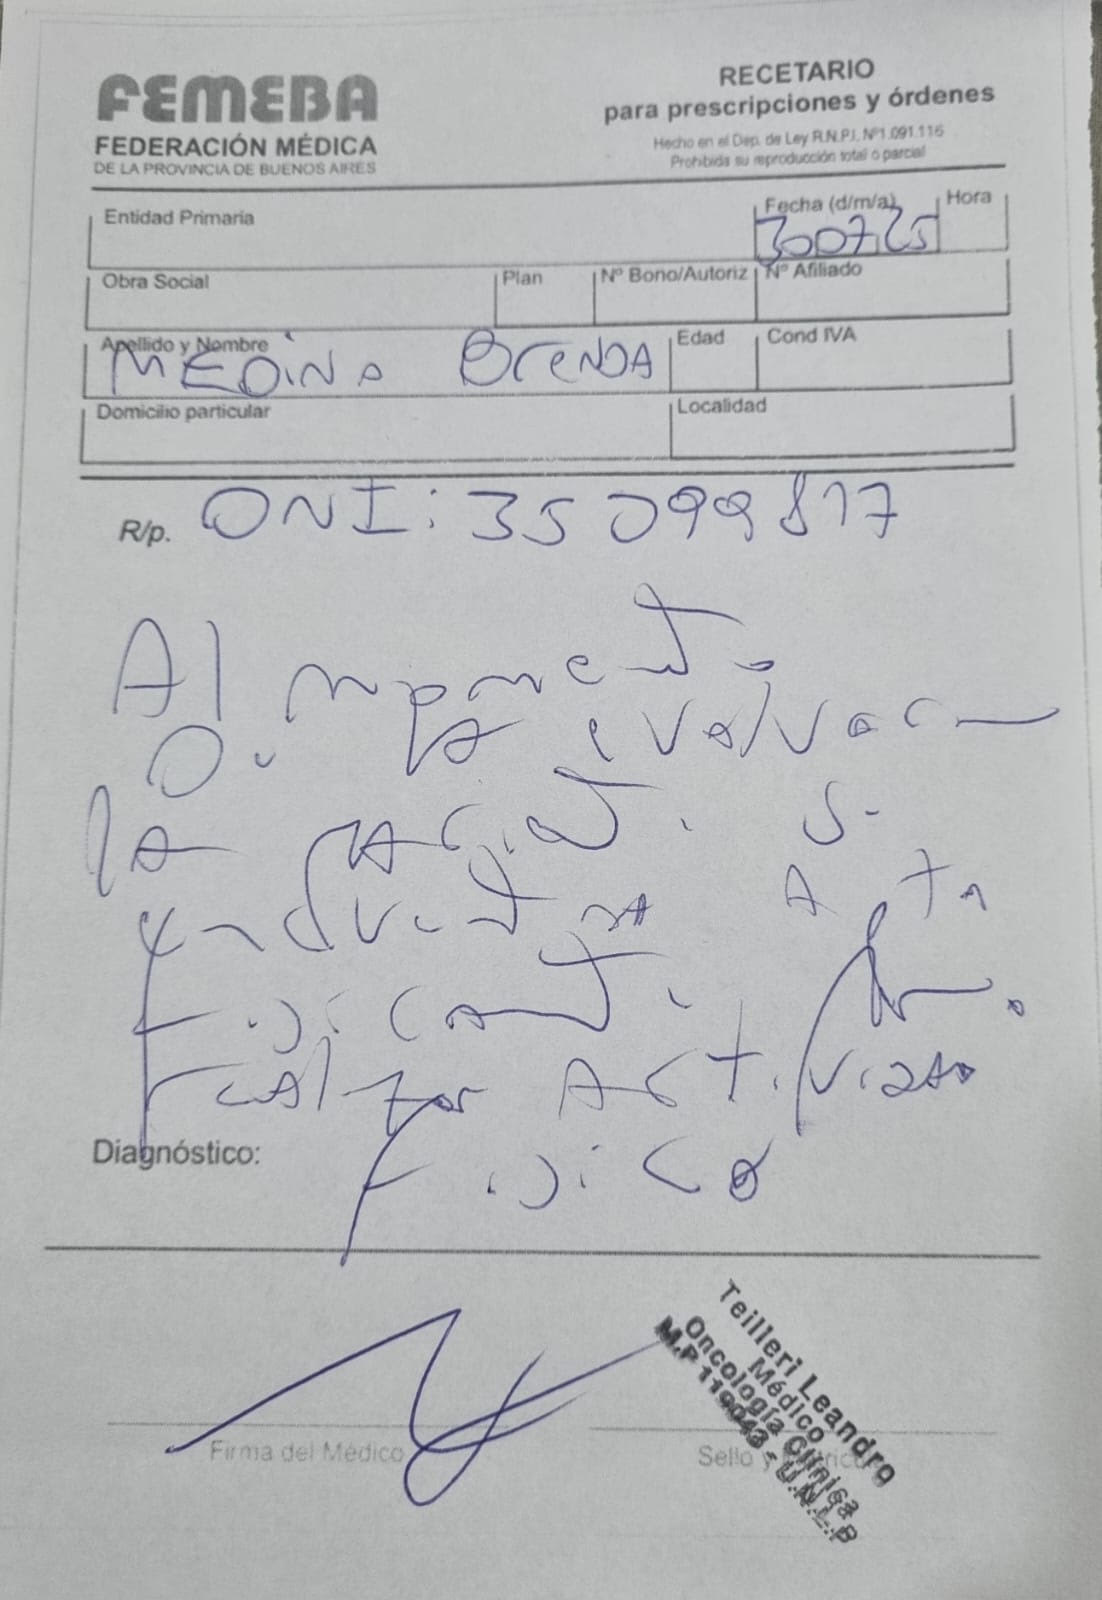 FEMEBA
FEDERACIÓN MÉDICA
DE LA PROVINCIA DE BUENOS AIRES
RECETARIO
para prescripciones y órdenes
Hecho en el Dep. de Ley R.N.P.I. Nº1.091.116
Prohibida su reproducción total o parcial
Entidad Primaria
Fecha (d/m/a)
Hora
300725
Obra Social
Plan
Nº Bono/Autoriz
Nº Afiliado
Apellido y Nombre
Edad
Cond IVA
MEDINA BrenDA
Domicilio particular
Localidad
R/p. DNI: 35099817
Al momento
evaluac
la
se
encuentra APTA
Fisicamente
realizar Actividad
Fisica
Diagnóstico:
Firma del Médico
Sello y
Teilleri Leandro
Médico
Oncología Clínica
M.P 119043 - U.N.L.P